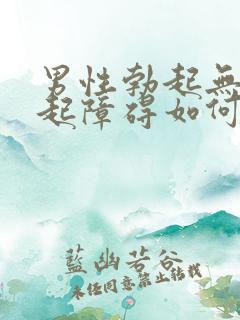 男性勃起無
起障碍如何
藍幽若谷
未经同意禁止转载